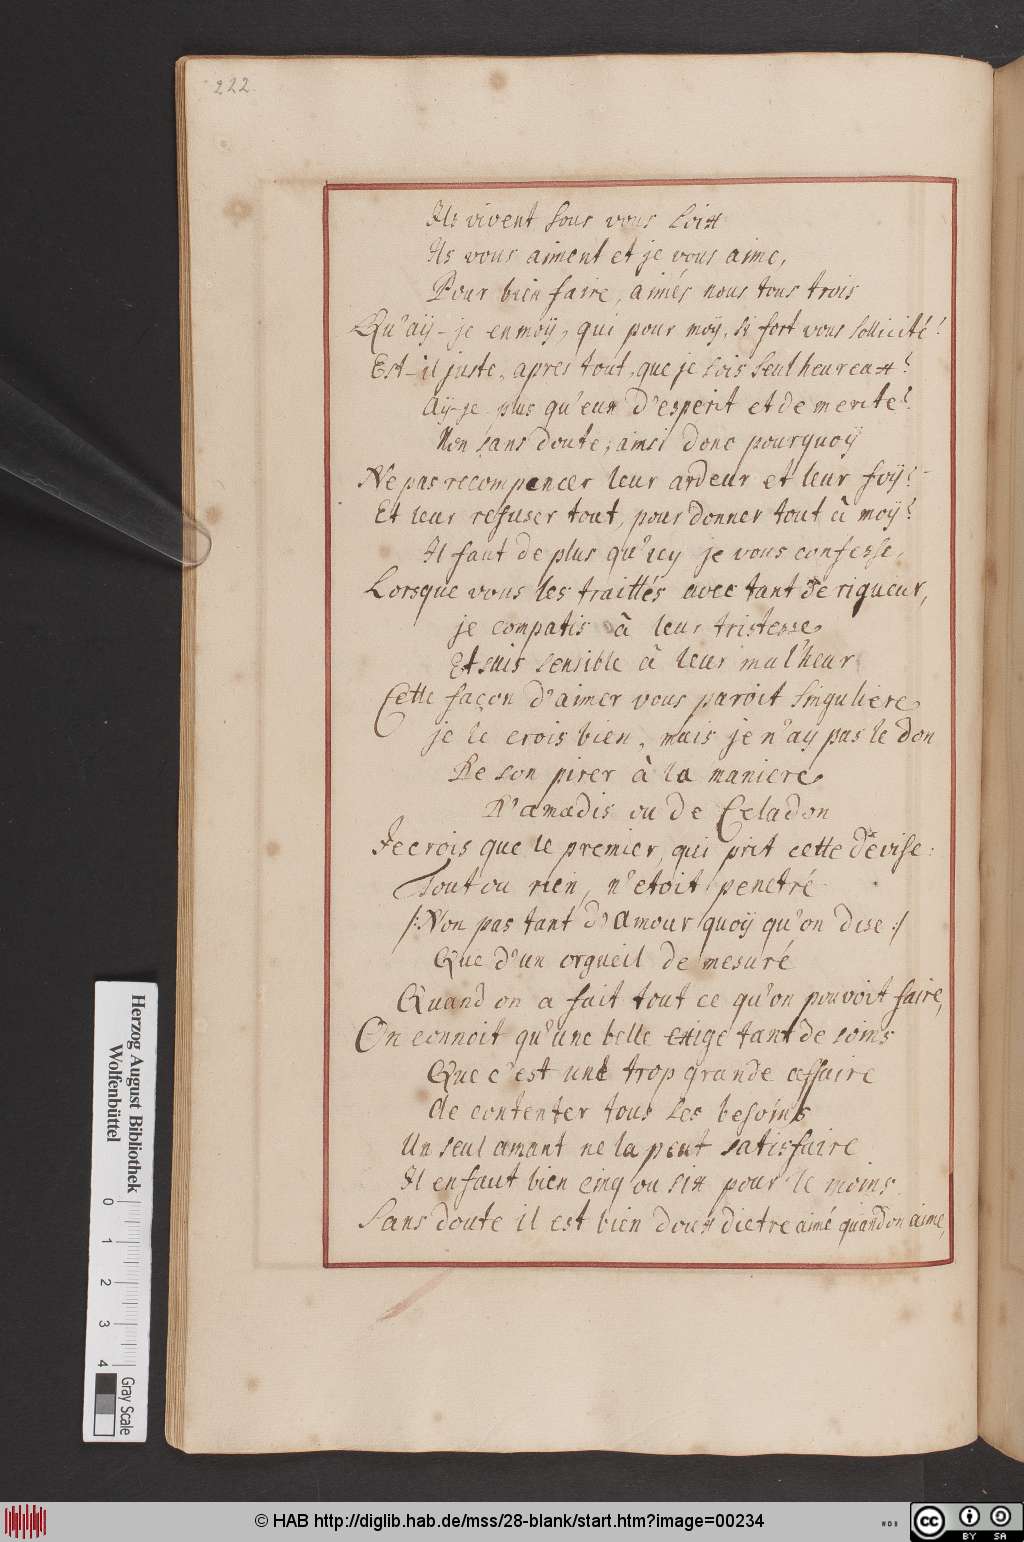 222.
Ils vivent sous vous Loix
Ils vous aiment et je vous aime,
Pour bien faire, aimés nous tous trois
Qu'aÿ-je en moÿ, qui pour moÿ, si fort vous sollicité!
Est-il juste, apres tout, que je sois seul heureux?
Aÿ-je plus qu'eux d'esperit et de merite?
Non sans doute, ainsi donc pourquoÿ
Ne pas recompencer leur ardeur et leur foÿ?
Et leur refuser tout, pour donner tout à moÿ?
Il faut de plus qu'icy je vous confesse,
Lorsque vous les traittés avec tant de rigueur,
je compatis à leur tristesse
Et suis sensible à leur mal'heur
Cette façon d'aimer vous paroit singuliere
je le crois bien, mais je n'ay pas le don
De son pirer à la maniere
D'amadis ou de Celadon
Je crois que le premier, qui prit cette dévise:
Tout ou rien, n'etoit penetré
/:Non pas tant d'amour quoÿ qu'on dise:/
Que d'un orgueil de mesuré
Quand on a fait tout ce qu'on pouvoit faire,
On connoit qu'une belle exige tant de soins
Que c'est une trop grande affaire
de contenter tous les besoins
Un seul amant ne la peut satisfaire
Il en faut bien cinq ou six pour le moins.
Sans doute il est bien doux dietre aimé quand on aime,
Herzog August Bibliothek
Wolfenbüttel
0 1 2 3 4
Gray Scale
© HAB http://diglib.hab.de/mss/28-blank/start.htm?image=00234
WDB
CC BY SA